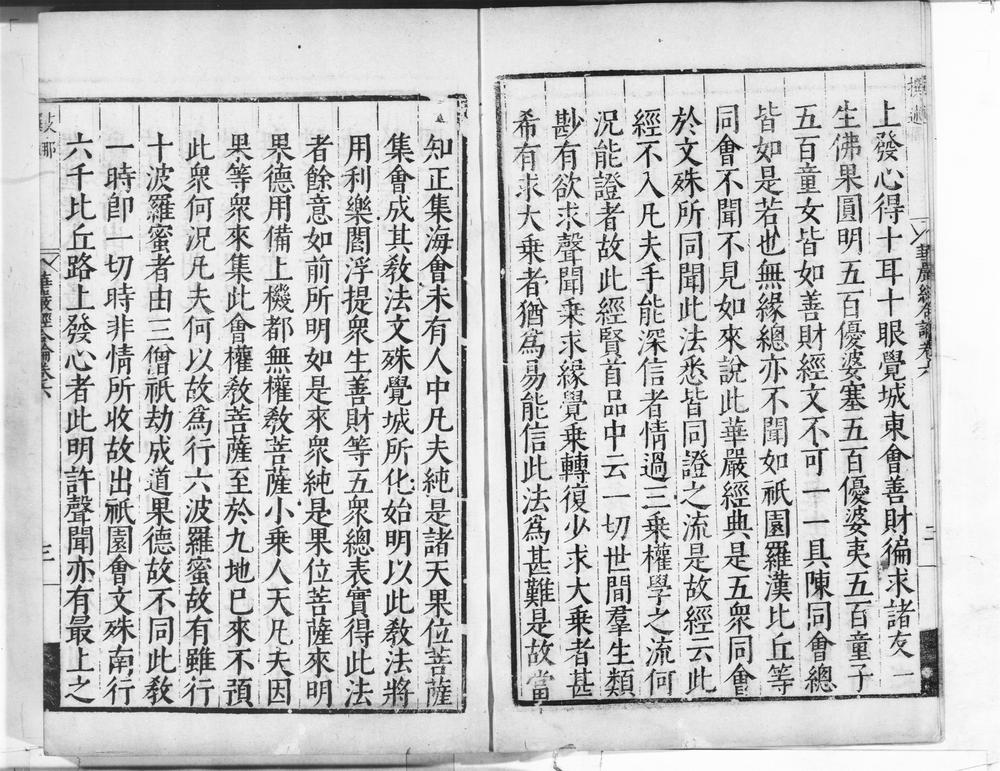 上發心得十耳十眼覺城東會善財徧求諸友一
生佛果圓明五百優婆塞五百優婆夷五百童子
五百童女皆如善財經文不可一一具陳同會總
皆如是若也無緣總亦不聞如祇園羅漢比丘等
同會不聞不見如來說此華嚴經典是五衆同會
於文殊所同聞此法悉皆同證之流是故經云此
經不入凡夫手能深信者情過三乗權學之流何
況能證者故此經賢首品中云一切世間羣生類
尠有欲求聲聞乗求緣覺乗轉復少求大乗者甚
希有求大乗者猶爲易能信此法爲甚難是故當
華嚴經合論卷六
二
知正集海會未有人中凡夫純是諸天果位菩薩
集會成其敎法文殊覺城所化始明以此敎法將
用利樂閻浮提衆生善財等五衆總表實得此法
者餘意如前所明如是來衆純是果位菩薩來明
果德用備上機都無權敎菩薩小乗人天凡夫因
果等衆來集此會權敎菩薩至於九地已來不預
此衆何況凡夫何以故爲行六波羅蜜故有雖行
十波羅蜜者由三僧祇劫成道果德故不同此敎
一時卽一切時非情所收故出祇園會文殊南行
六千比丘路上發心者此明許聲聞亦有最上之
華嚴經合論卷六
三